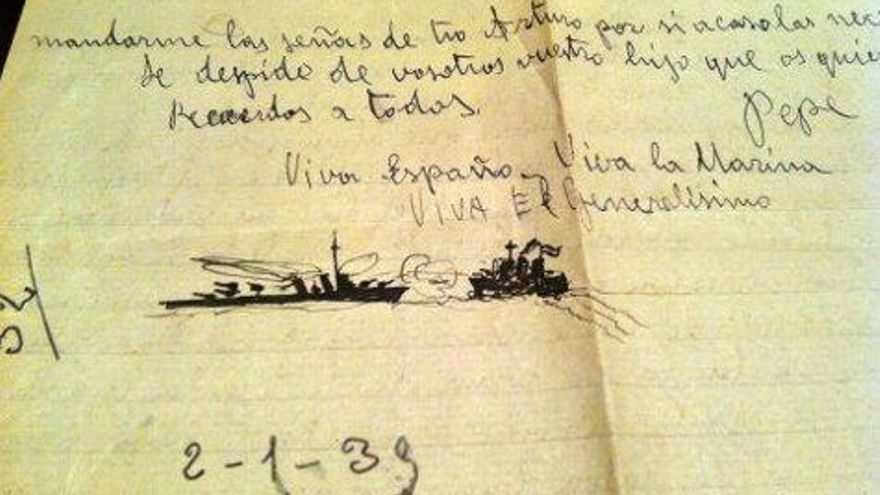 mandarme las señas de tio Arturo por si acaso las nec
Se despide de vosotros vuestro hijo que os quier
Recuerdos a todos.
Pepe
Viva España, Viva la Marina
VIVA El Generalisimo
2-1-39